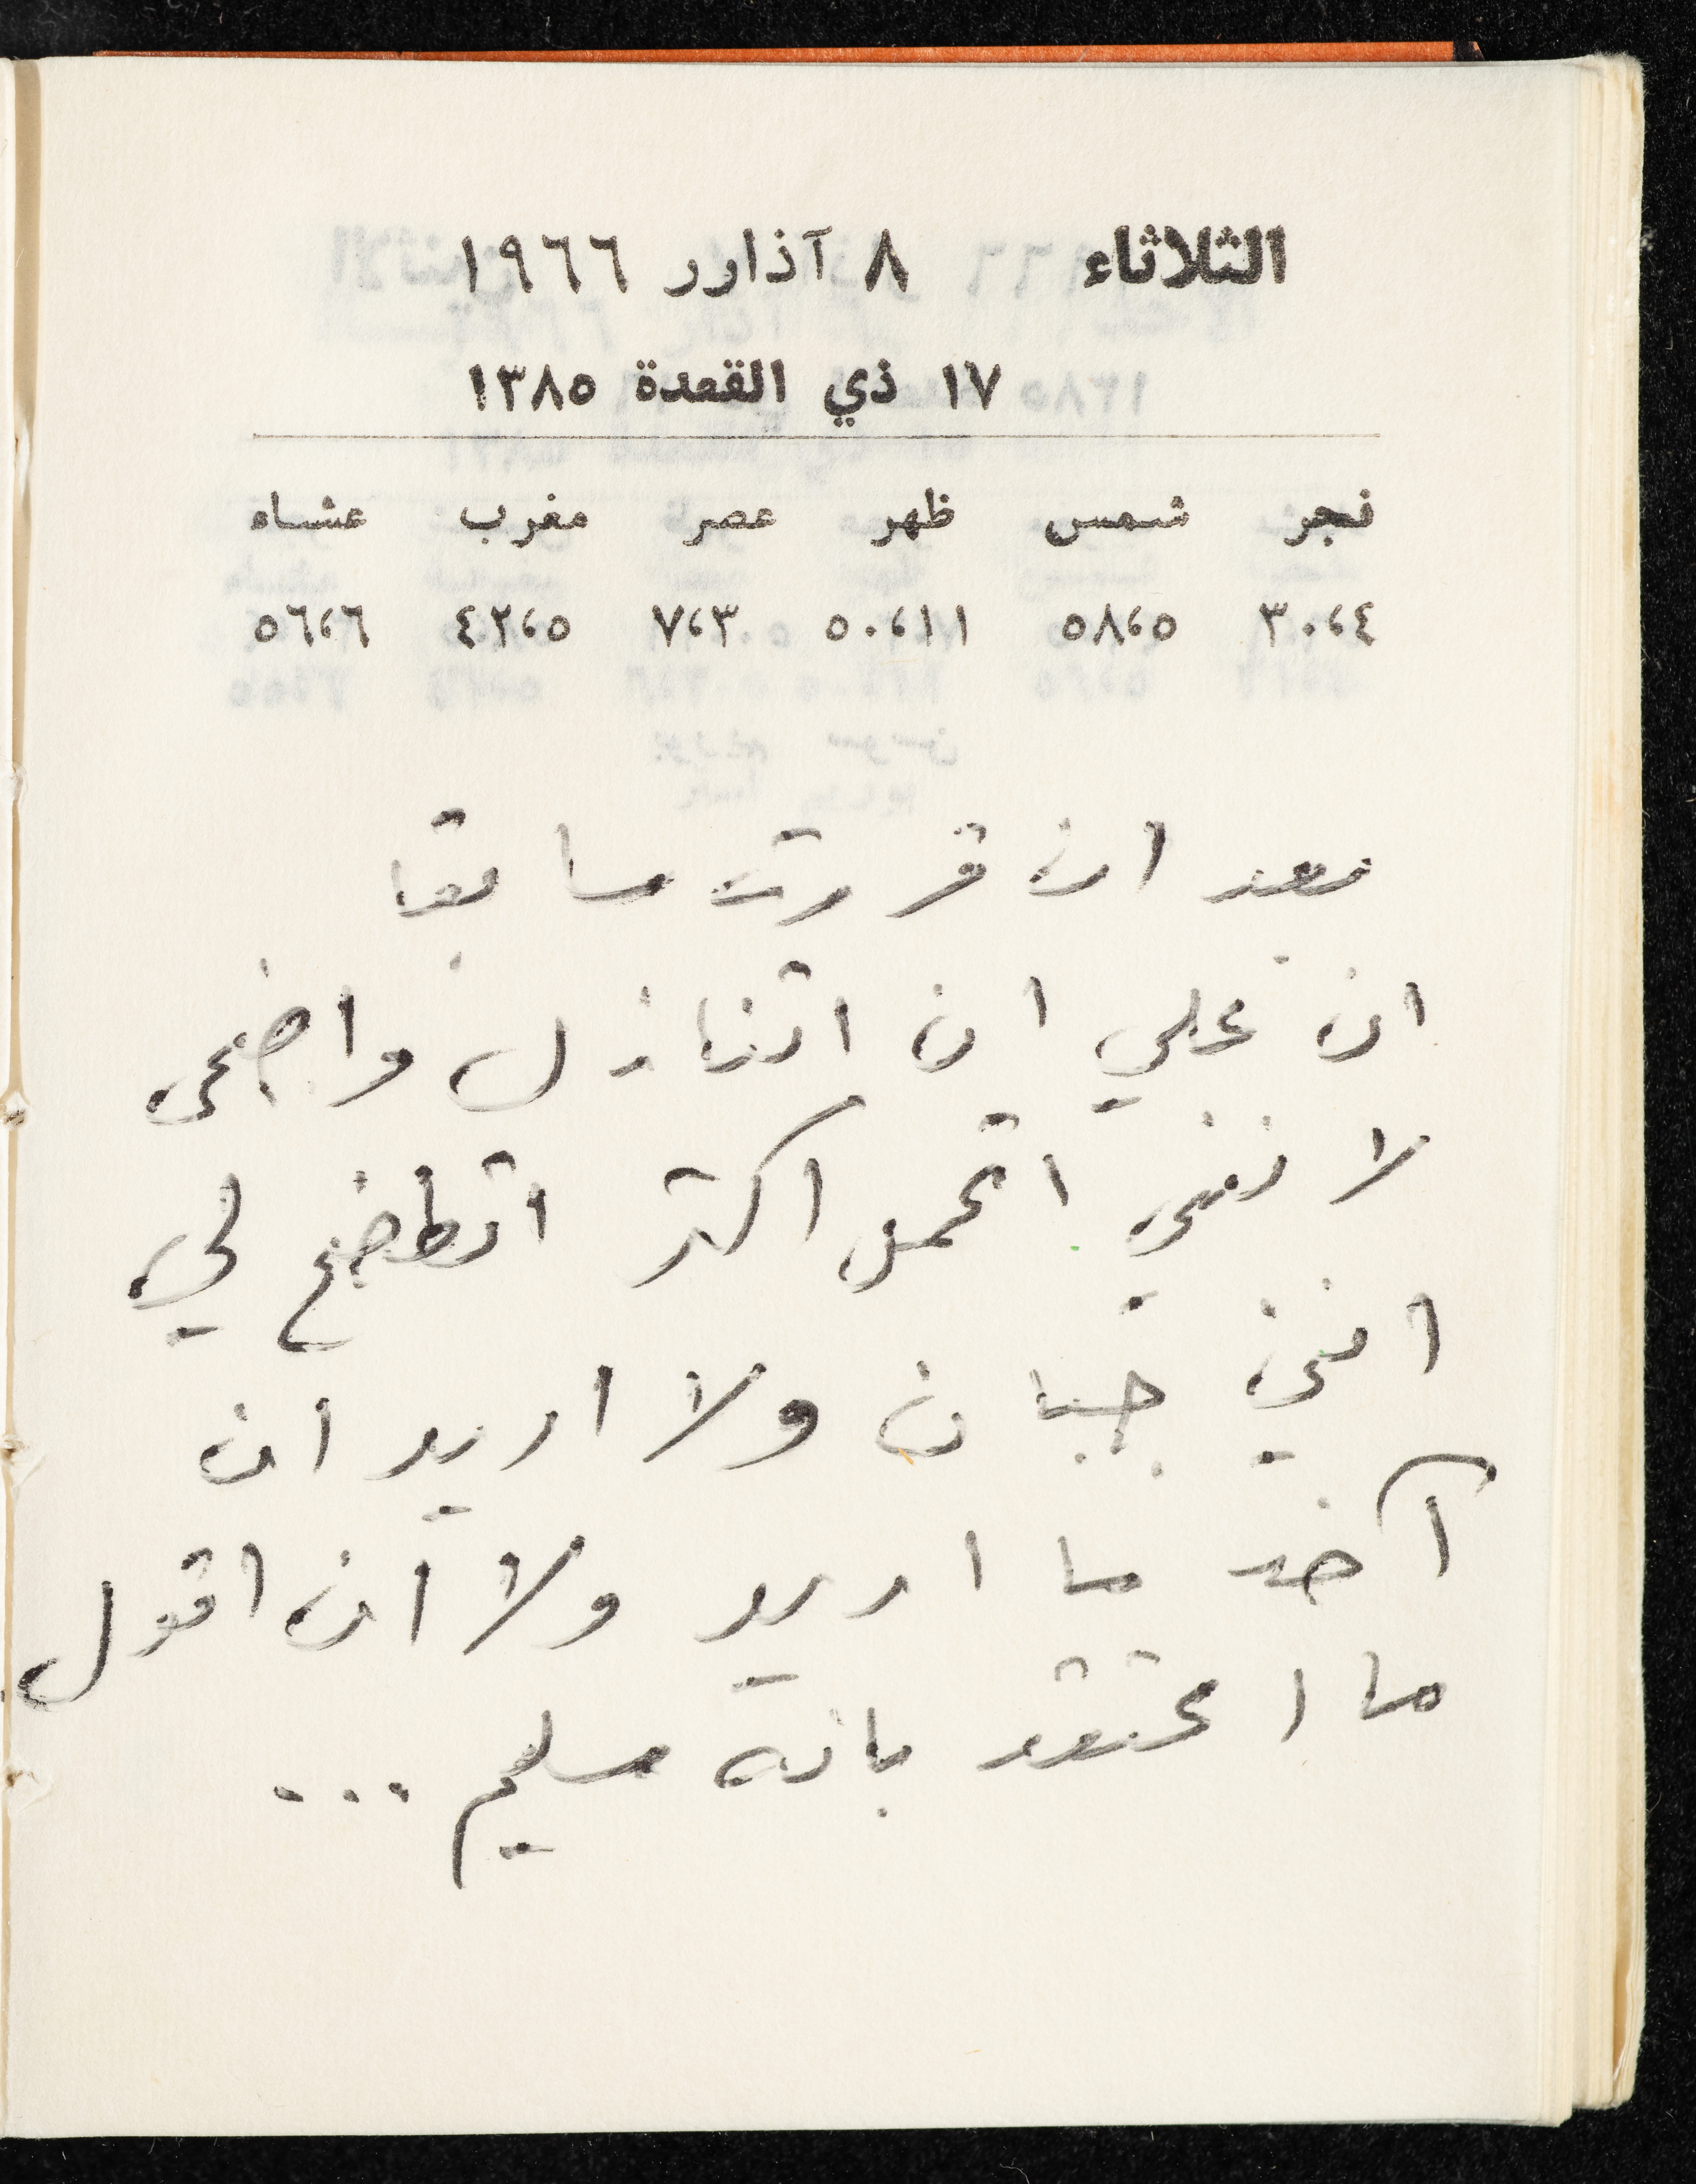 الثلاثاء ٨ آذارر ١٩٦٦
١٧ ذي القعدة ١٣٨٥
فجر شمس ظهر عصر مغرب عشاء
٣٠،٤ ٥٨،٥ ٥٠،١١ ٧،٣ ٤٢،٥ ٥٦،٦
بعد ان قررت سابقا
ان علي ان اتنازل واضحى
لا ننني اتحمل اكثر اتطضح لي
انني جبان ولا اريد ان
آخذ ما اريد ولا ان اقول
ما اعتقد بانه سليم ...